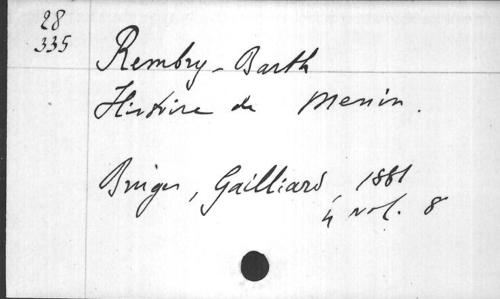 28
335
Rembry-Barth
Histoire de Menin.
Bruges, Gailliard, 1881
4 vol. 8